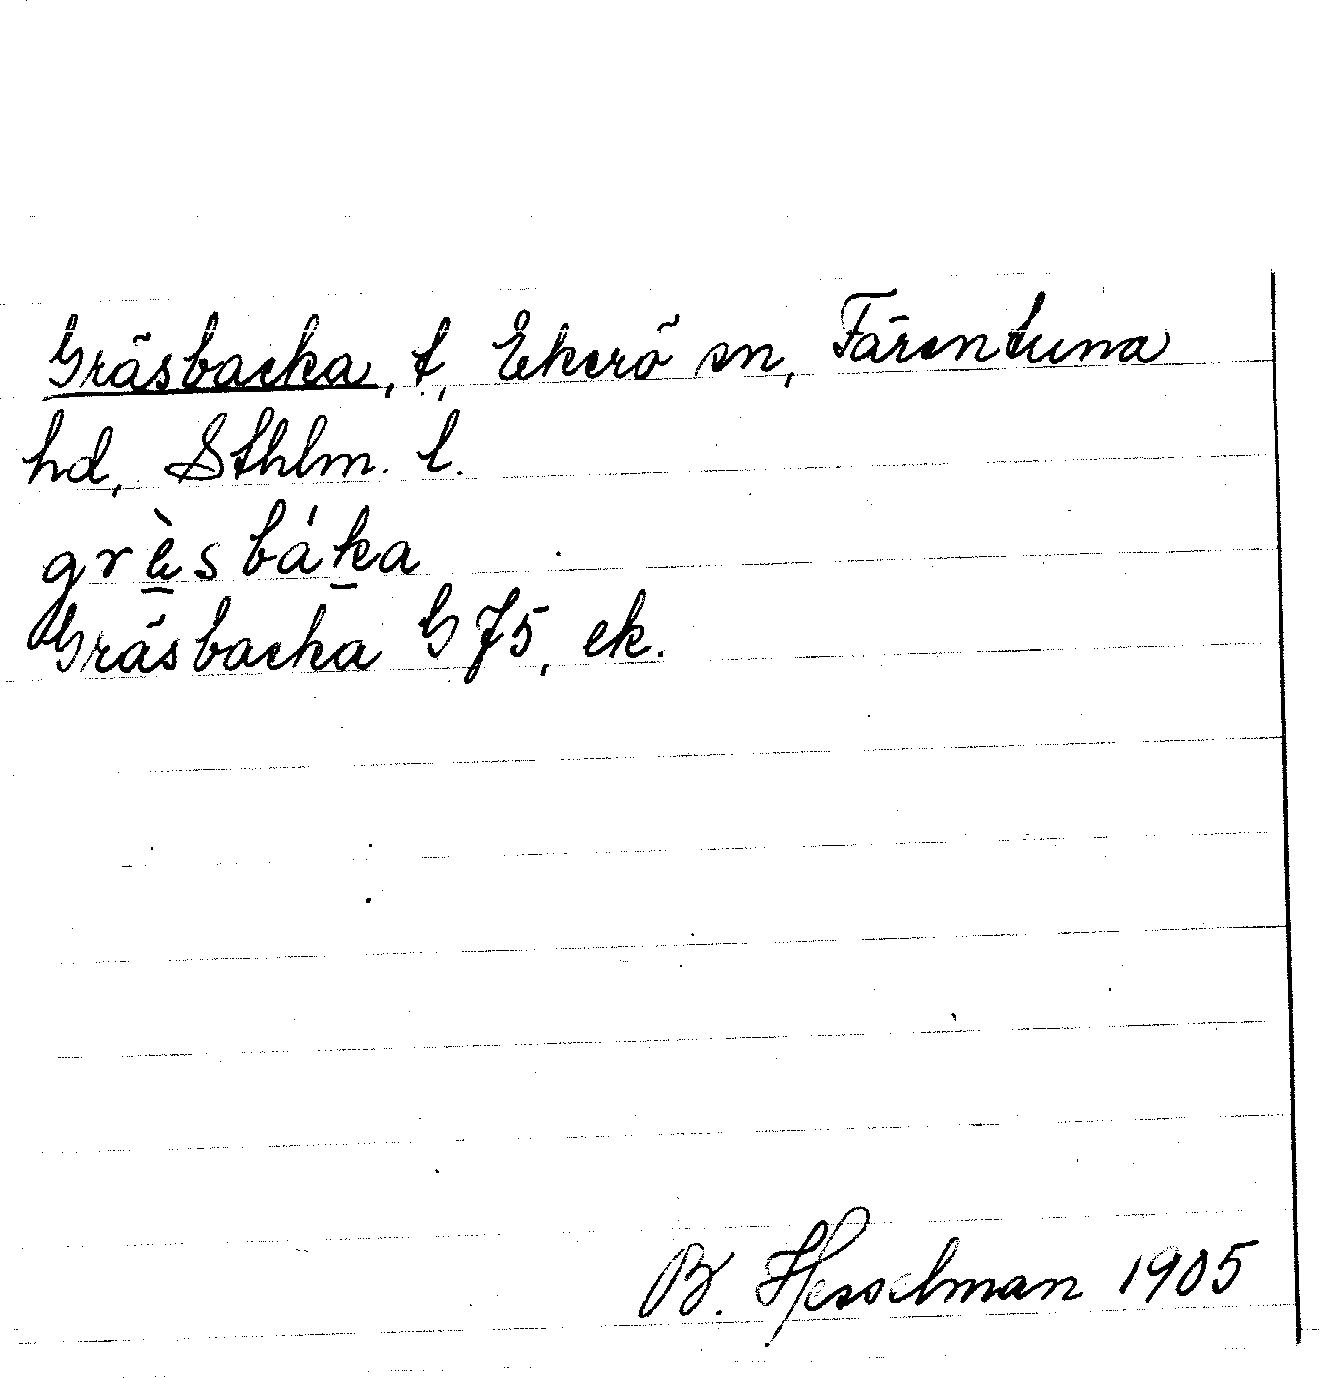 Gräsbacka, t, Ekerö sn, Färentuna
hd, Sthlm. l.
grèsbáka
Gräsbacka G J5, ek.
B. Hesselman 1905